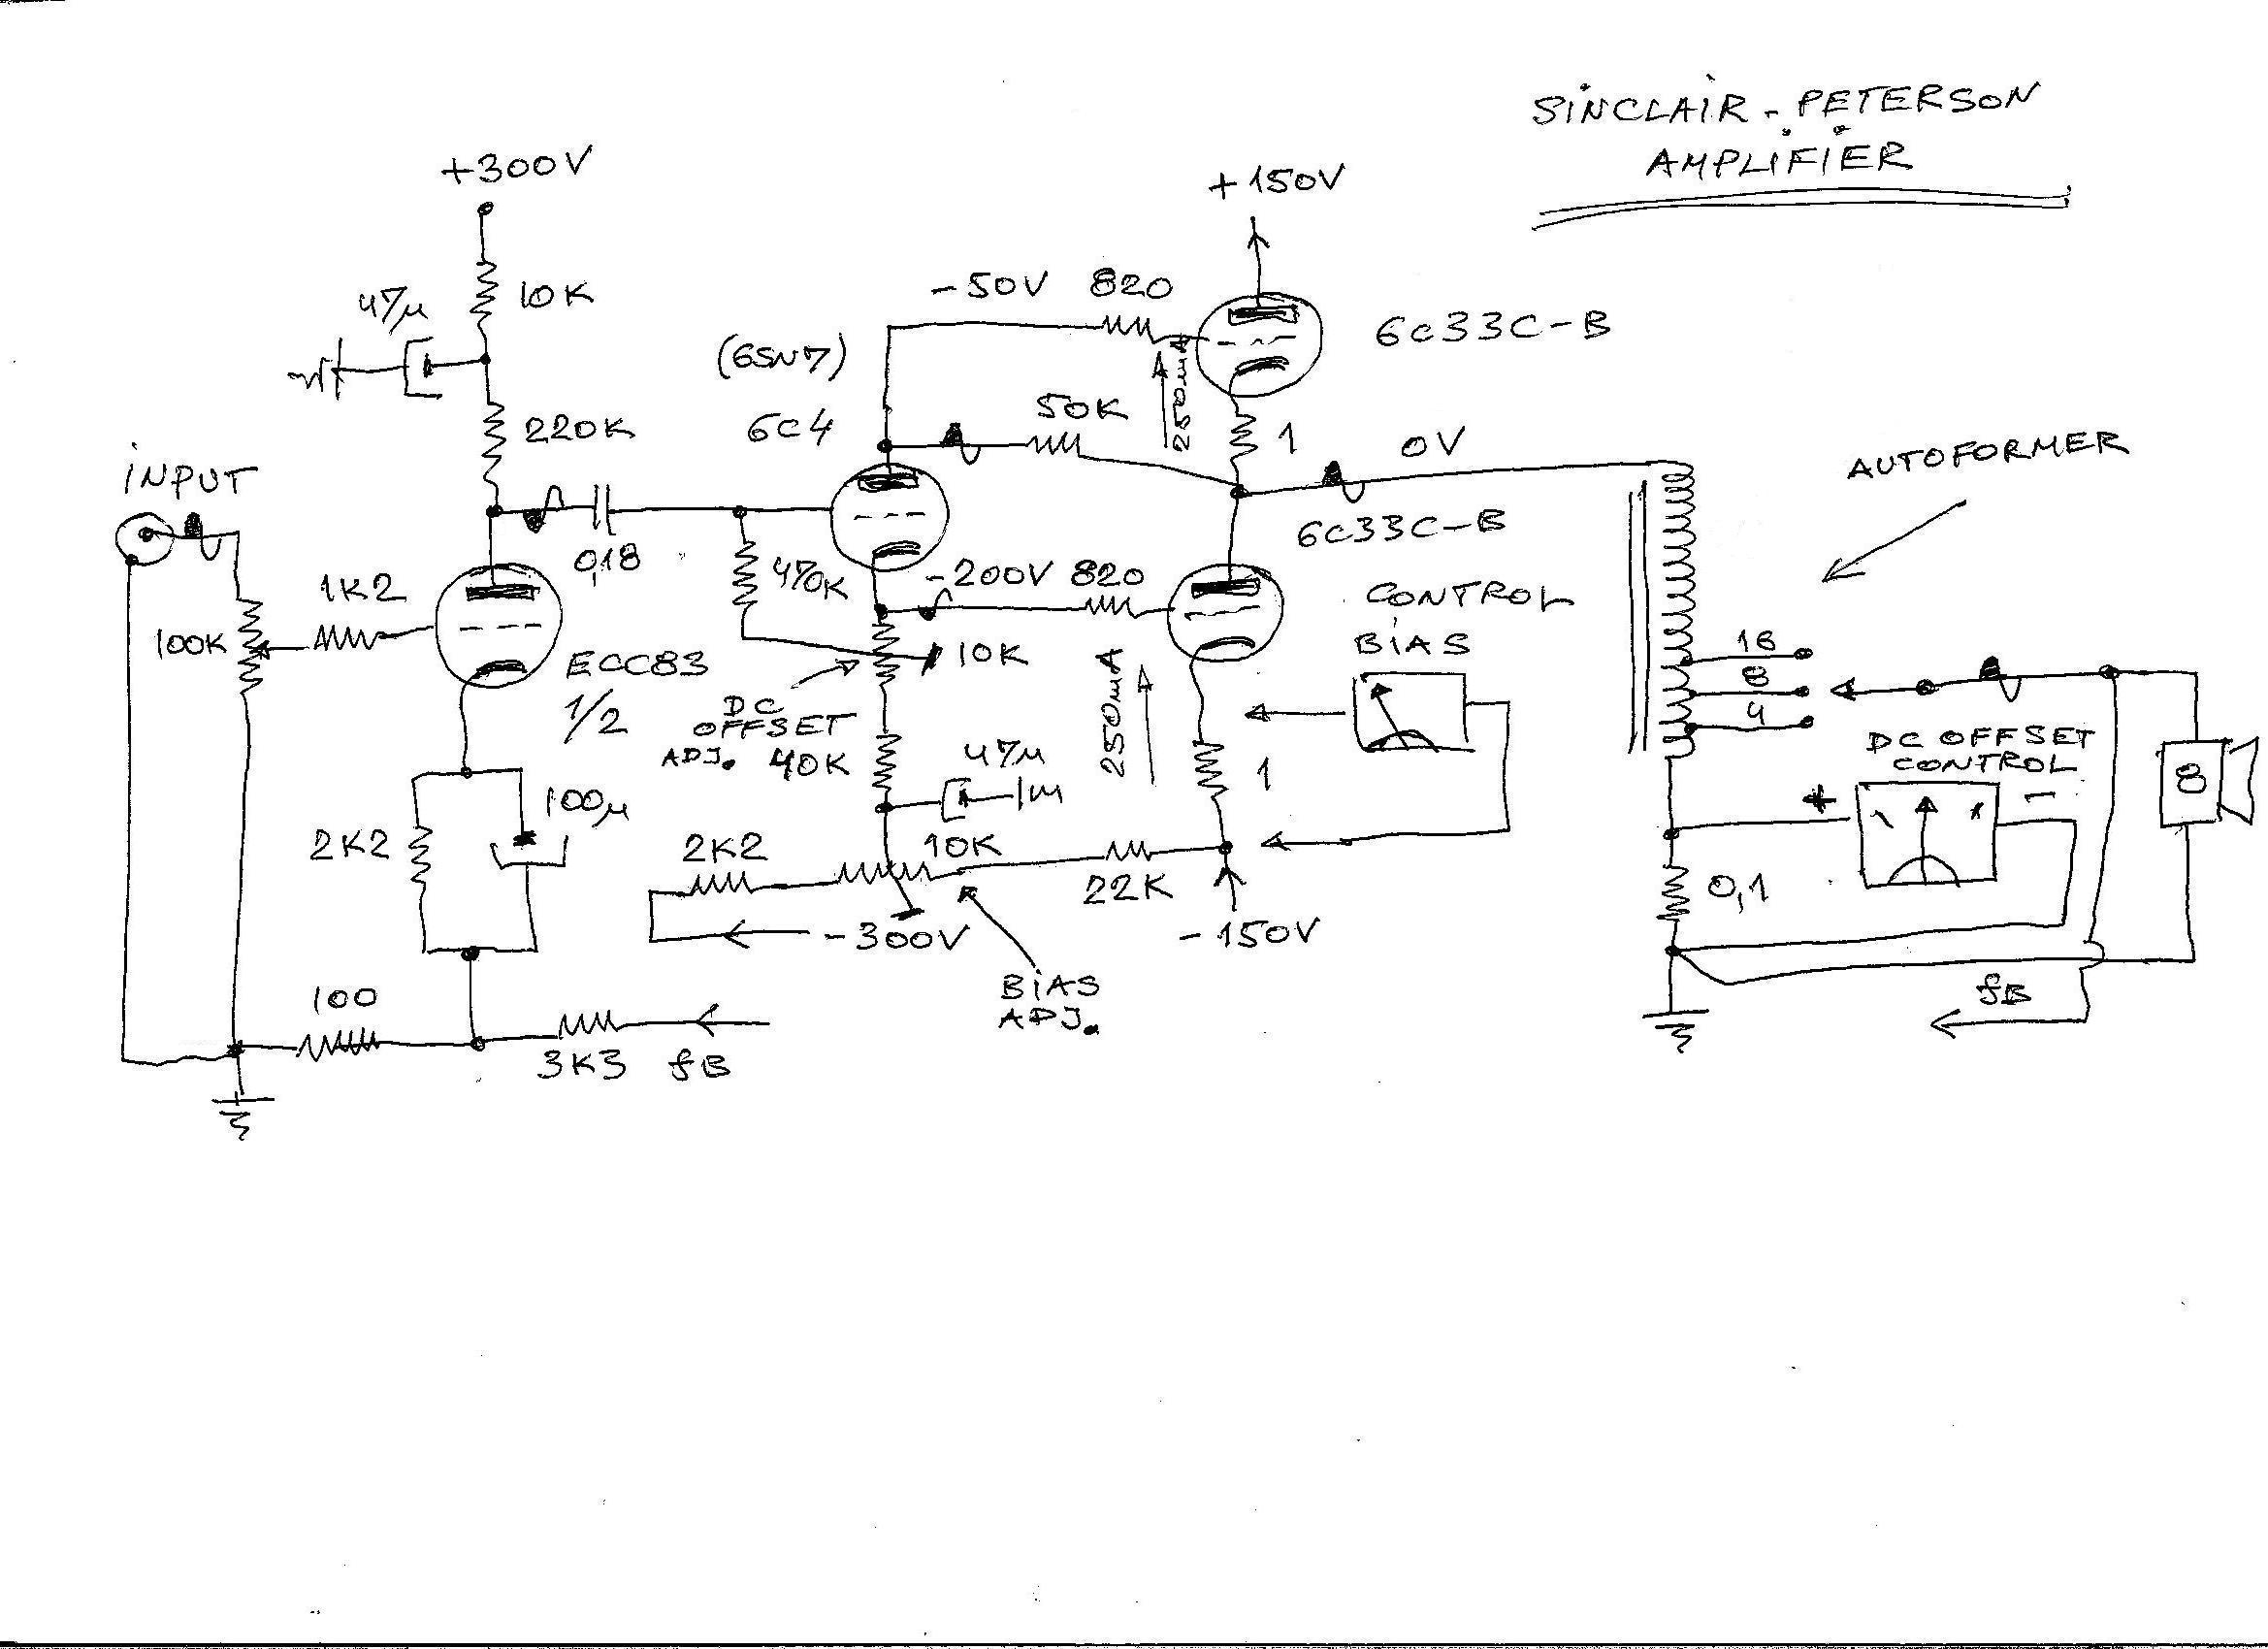 SINCLAIR - PETERSON
AMPLIFIER
+300V
10K
47µ
220K
INPUT
100K
1K2
0,18
ECC83
1/2
2K2
100µ
100
3K3 fB
(6SN7)
6C4
470K
-50V 820
50K
250mA
+150V
6C33C-B
1
0V
6C33C-B
-200V 820
10K
DC
OFFSET
ADJ.
40K
47µ
250mA
1
CONTROL
BIAS
2K2
10K
22K
-300V
-150V
BIAS
ADJ.
AUTOFORMER
16
8
4
DC OFFSET
CONTROL
+
-
0,1
8
fB